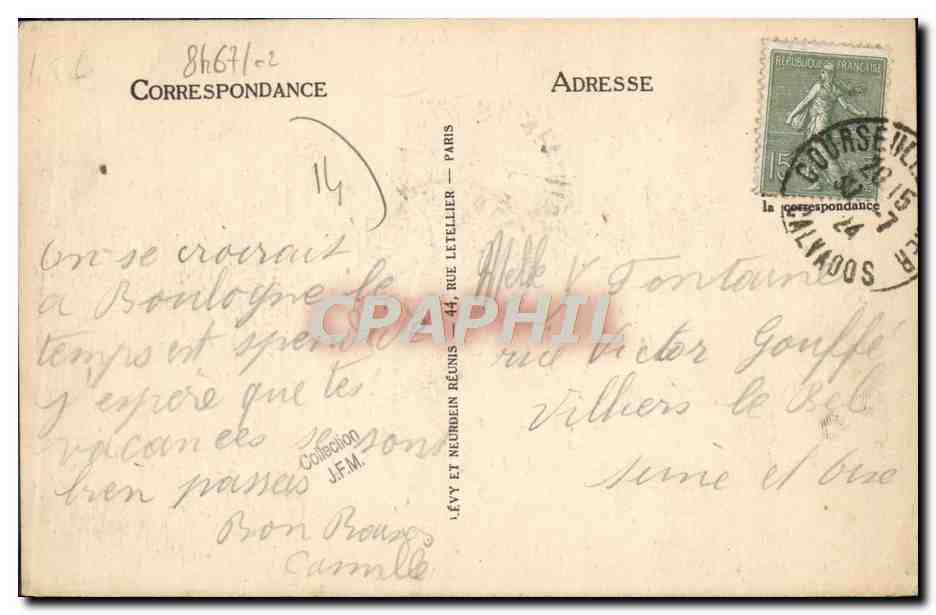 8467/02
CORRESPONDANCE
ADRESSE
14
RÉPUBLIQUE FRANÇAISE
15
la correspondance
20 15
-7
24
CALVADOS
On se croirait
a Boulogne le
temps est
j'espère que tes
vacances se sont
bien passés
Bon Baiser
Camille
LÉVY ET NEURDEIN RÉUNIS — 44, RUE LETELLIER — PARIS
Melle V Fontaine
rue Victor Gouffé
Villiers le Bel
seine et oise
CPAPHIL
Collection
J.F.M.